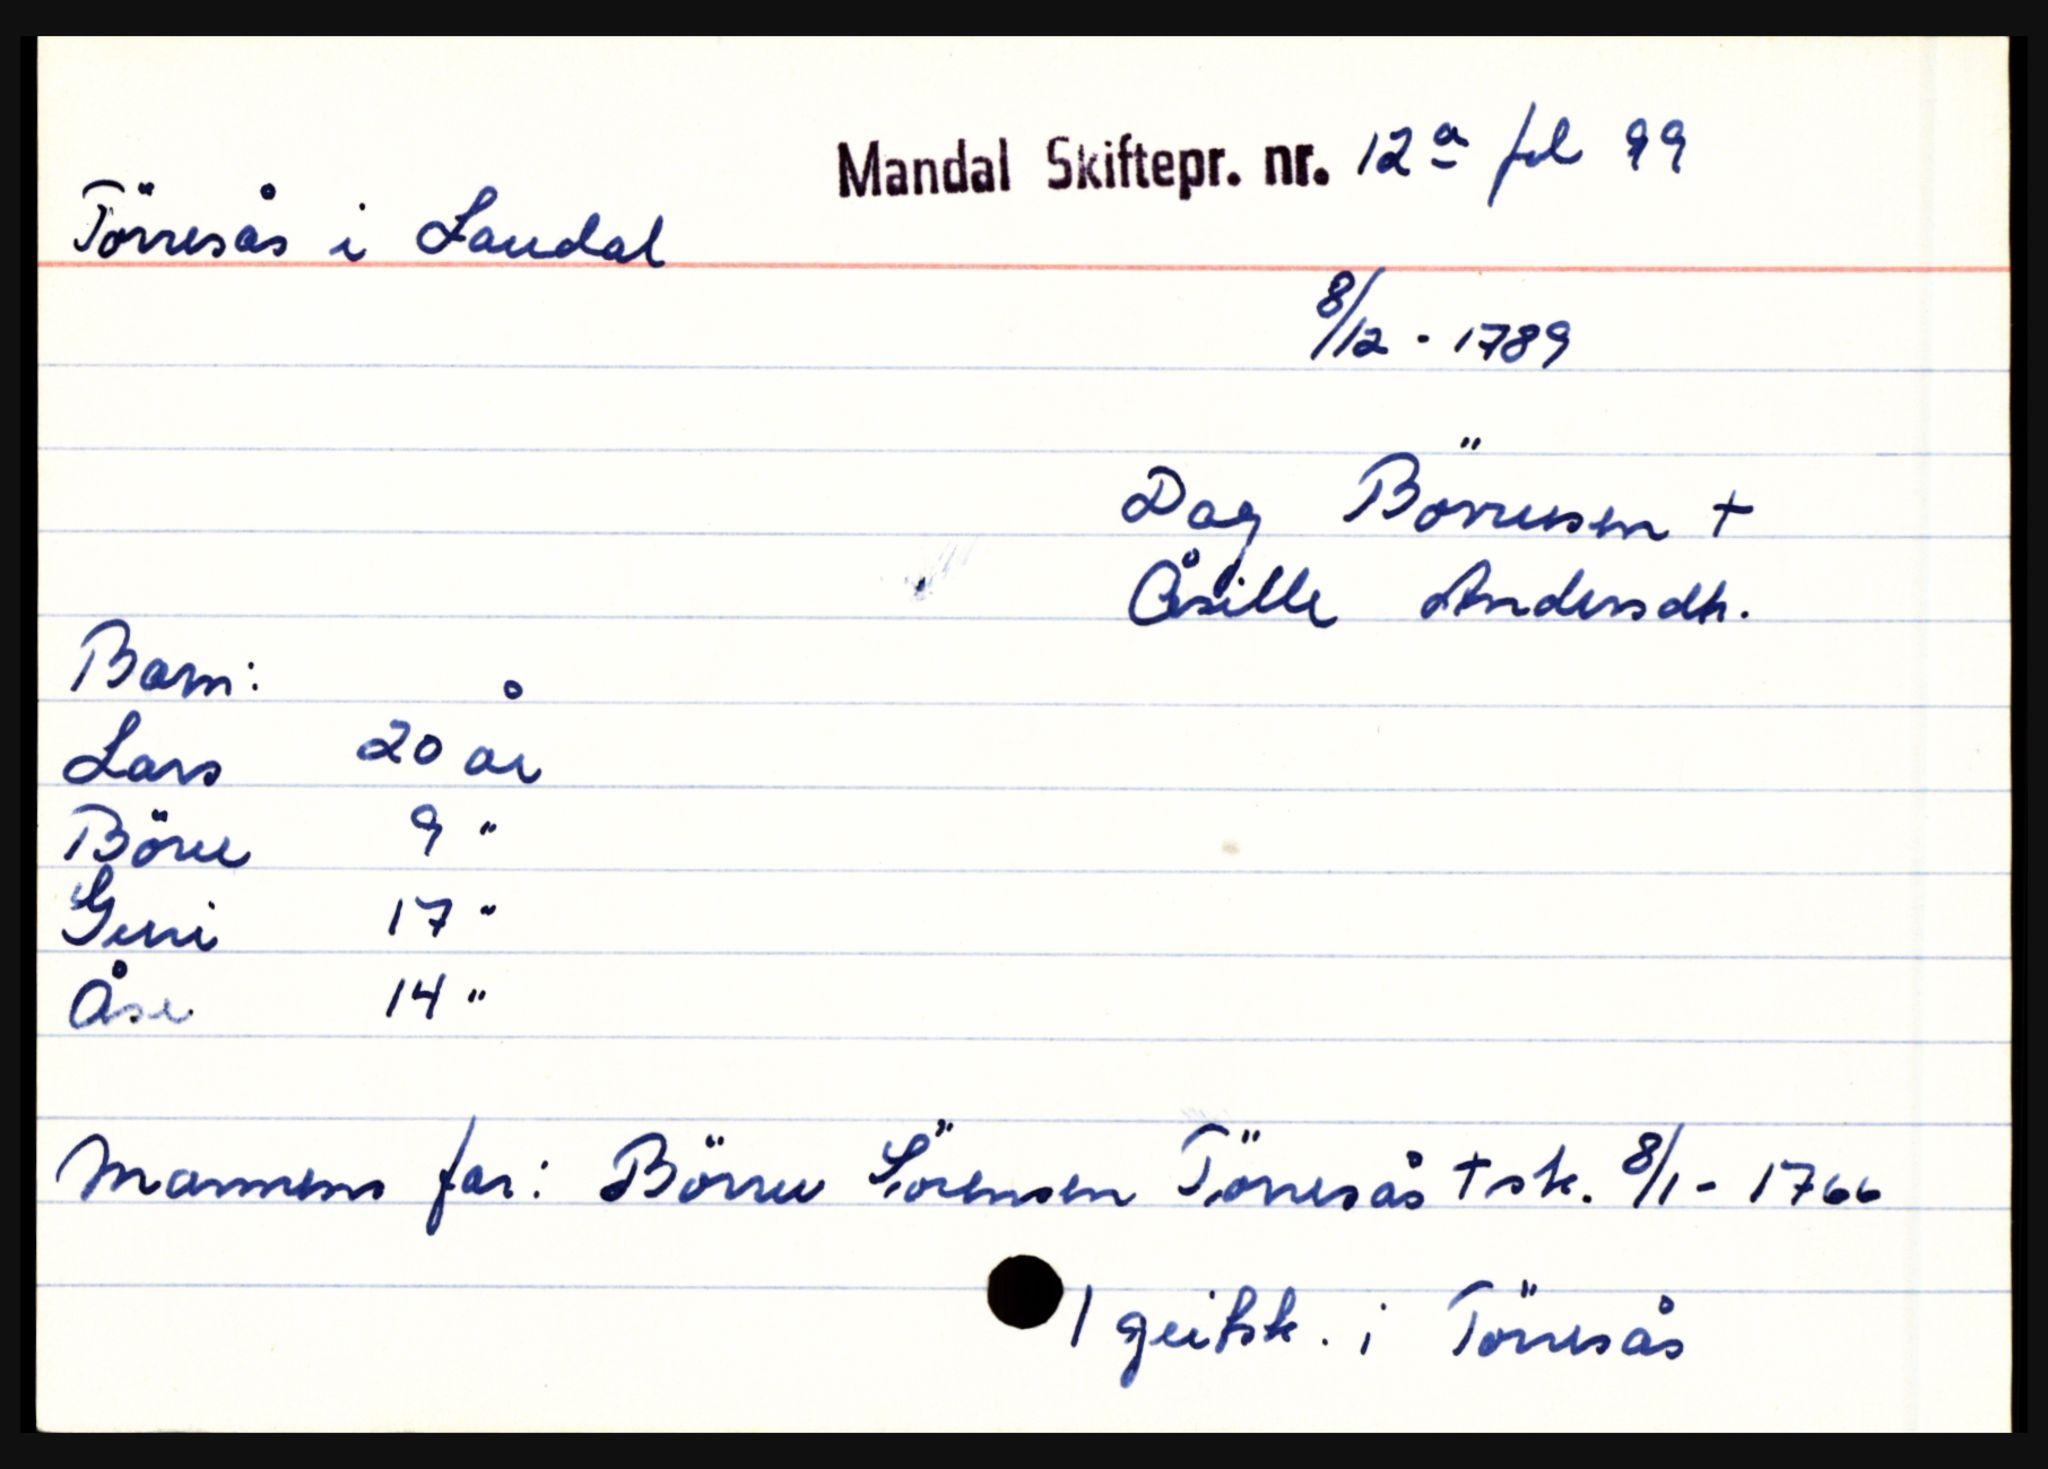 Mandal Skiftepr. nr. 12a fol 99
Törresås i Laudal
8/12 - 1789
Dag Börresen +
Åsille Andersdh.
Barn:
Lars 20 år
Börre 9 "
Guri 17 "
Åse 14 "
Mannens far: Börre Sörensen Törresås + sk. 8/1 - 1766
1 geitsk. i Törresås